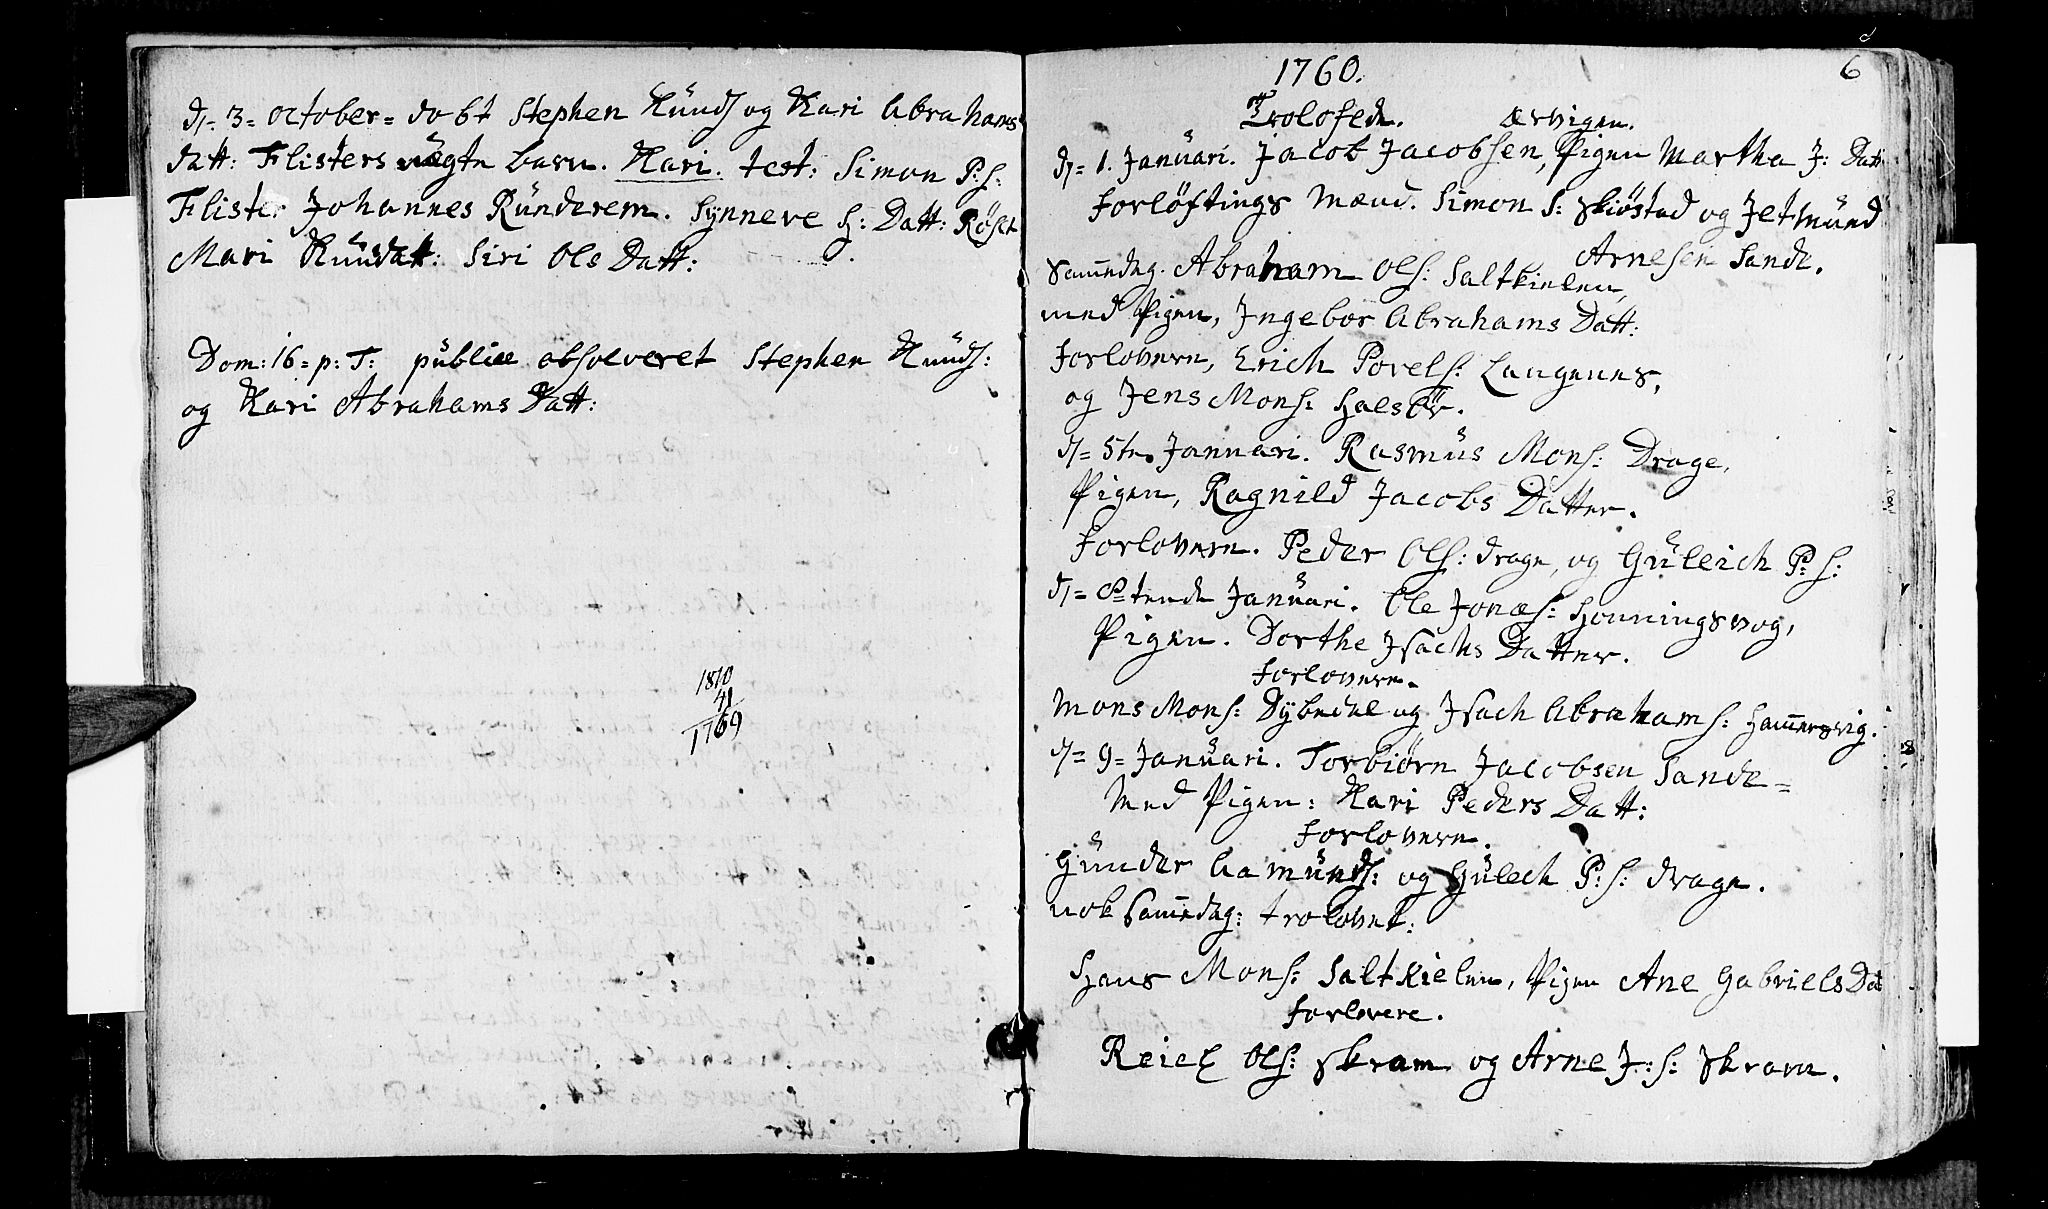 d. 3= october= döbt Stephen Knuds og Kari Abrahams
datt: Flisters uægte barn. Kari. test: Simon P:s:
Flister Johannes Runderem. Synneve H: Datt: Röset
Mari Knudatt: Siri Ols Datt:
Dom: 16= p: T: publice absolveret Stephen Knuds:
og Kari Abrahams Datt:
1810
41
1769
1760. 6
Trolofede. Ervigen.
d= 1. Januari. Jacob Jacobsen, Pigen Martha J: Datt
Forlöftings Mænd. Simon S: Skiöstad og Jetmund
Arnesen Sande.
Samedag. Abraham Ols: Saltkielen,
med Pigen, Ingebor Abrahams Datt:
Forlovere, Erich Povels: Langenes,
og Jens Mons: Halsör.
d= 5te Januari. Rasmus Mons: Drage,
Pigen, Ragnild Jacobs Datter.
Forlovere. Peder Ols: drage, og Guleich P: s:
d= 8tende Januari. Ole Jonæs: Honningsvog,
Pigen. Dorthe Isachs Datter.
Forlovere.
Mons Mons: Dybedal og Isach Abrahams: Hamersvig.
d= 9= Januari. Torbiørn Jacobsen Sande=
Med Pigen: Kari Peders Datt:
Forlovere.
Gunder Aamunds: og Gulech P: s: drage.
nok Samedag: trolovet:
Hans Mons: Saltkielen, Pigen Ane Gabriels Dat
Forlovere.
Reiel Ols: Skram og Arne J: s: Skram.